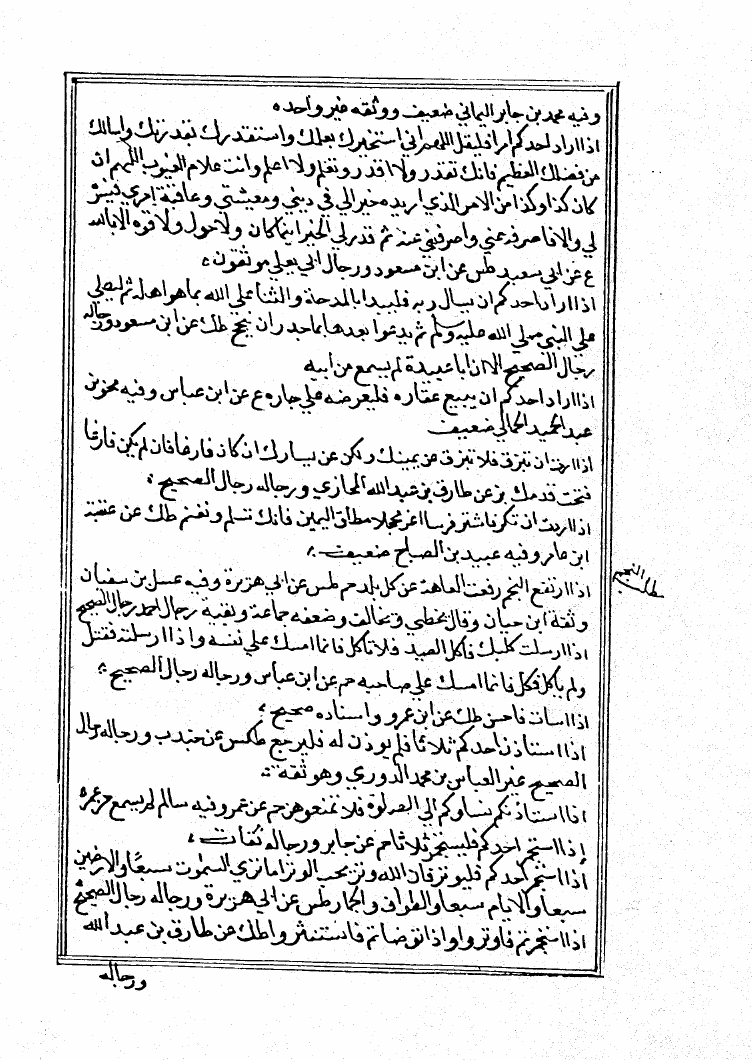 وفيه محمد بن جابر اليماني ضعيف ووثقه غير واحده
اذا اراد احدكم امرا فليقل اللهم اني استخيرك بعلمك واستقدرك بقدرتك واسالك
من فضلك العظيم فانك تقدر ولا اقدر وتعلم ولا اعلم وانت علام الغيوب اللهم ان
كان كذا وكذا من الامر الذي اريد خيرا لي في ديني ومعيشتي وعاقبة امري فيسره
لي والا فاصرفه عني واصرفني عنه ثم قدر لي الخير اينما كان ولا حول ولا قوه الا بالله
ع عن ابي سعيد طس عن ابن مسعود ورجال ابي يعلي موثقون
اذا اراد احدكم ان يسال ربه فليبدا بالمدحة والثنا علي الله بما هو اهله ثم ليصلي
علي النبي صلي الله عليه وسلم ثم يدعوا بعدها بما جدر ان ينجح طك عن ابن مسعود ورجاله
رجال الصحيح الا ان ابا عبيدة لم يسمع من ابيه
اذا اراد احدكم ان يبيع عقاره فليعرضه علي جاره ع عن ابن عباس وفيه
عبد الحميد الحماني ضعيف
اذا اردت ان تبزق فلا تبزق عن يمينك ولكن عن يسارك ان كان فارغا فان لم يكن فارغا
فتحت قدمك بز عن طارق بن عبد الله المحاربي ورجاله رجال الصحيح
اذا اردت ان تكر فاشتر فرسا اغر محجلا مطلق اليمين فانك تسلم وتغنم طك عن عقبة
ابن عامر وفيه عبيد بن الصباح ضعيف
اذا ارتفع النجم رفعت العاهة عن كل بلد حم طس عن ابي هريرة وفيه عسل بن سفيان
وثقة ابن حبان وقال يخطي ويخالف وضعفه جماعة وبقية رجال احمد رجال الصحيح
اذا ارسلت كلبك فاكل الصيد فلا تاكل فانما امسك علي نفسه واذا ارسلته فقتل
ولم ياكل فكل فانما امسك علي صاحبه حم عن ابن عباس ورجاله رجال الصحيح
اذا اسات فاحسن طك عن ابن عمرو واسناده صحيح
اذا استاذن احدكم ثلاثا فلم يوذن له فليرجع طكس عن جندب ورجاله رجال
الصحيح غير العباس بن محمد الدوري وهو ثقة
اذا استاذنكم نساوكم الي الصلوة فلا تمنعوهن حم عن عمر وفيه سالم لم يسمع من عمر
اذا استجمر احدكم فليستجمر ثلاثا حم عن جابر ورجاله ثقات
اذا استجمر احدكم فليوتر فان الله وتر يحب الوتر اما تري السموت سبعا والارضين
سبعا والايام سبعا والطواف والجمار طس عن ابي هريرة ورجاله رجال الصحيح
اذا استجمرتم فاوتروا واذا توضاتم فاستنثروا طك عن طارق بن عبد الله
ورجاله